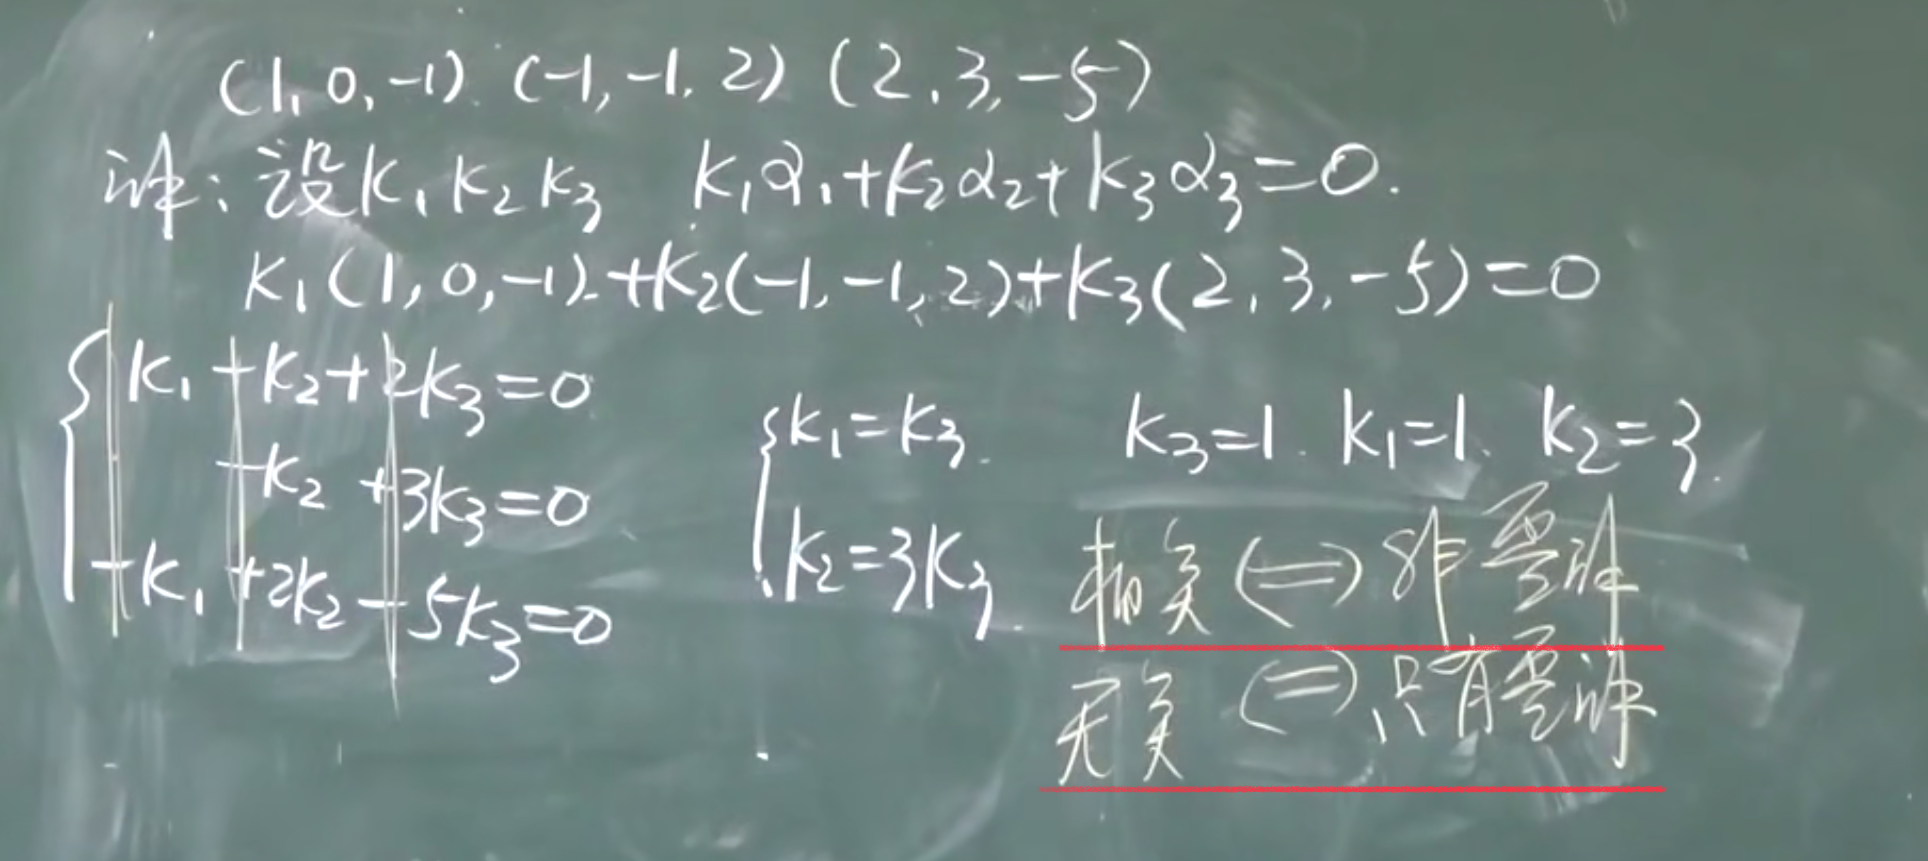 (1,0,-1) (-1,-1,2) (2,3,-5)
证:设k₁k₂k₃ k₁α₁+k₂α₂+k₃α₃=0.
k₁(1,0,-1)+k₂(-1,-1,2)+k₃(2,3,-5)=0
k₁+k₂+2k₃=0
-k₂+3k₃=0
-k₁+2k₂-5k₃=0
k₁=k₃. k₃=1. k₁=1. k₂=3.
k₂=3k₃.
相关⟺非零解
无关⟺只有零解